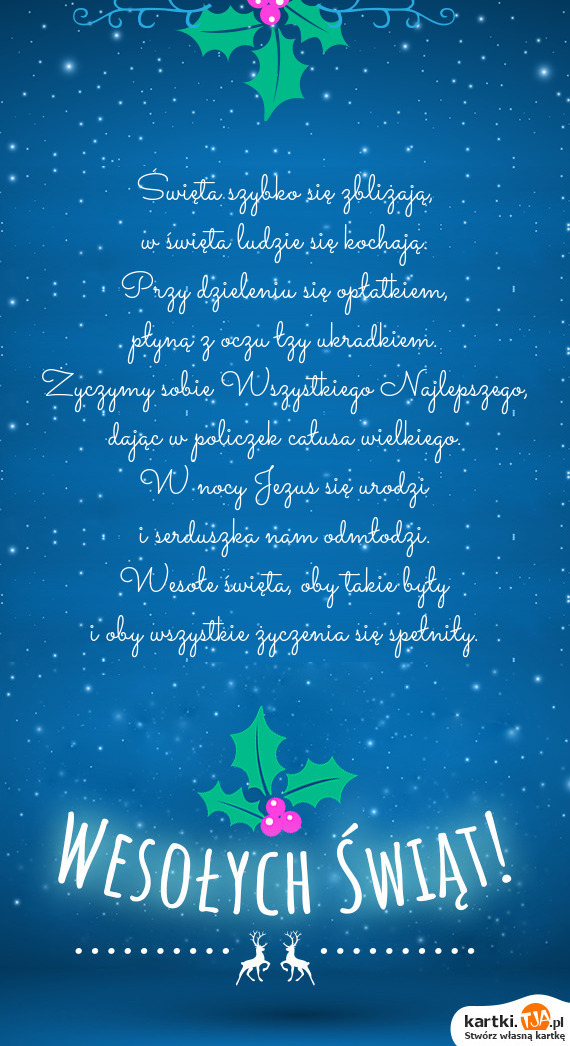 Święta szybko się zbliżają,
w święta ludzie się kochają.
Przy dzieleniu się opłatkiem,
płyną z oczu łzy ukradkiem.
Życzymy sobie Wszystkiego Najlepszego,
dając w policzek całusa wielkiego.
W nocy Jezus się urodzi
i serduszka nam odmłodzi.
Wesołe święta, oby takie były
i oby wszystkie życzenia się spełniły.
Wesołych Świąt!
kartki.TJA.pl
Stwórz własną kartkę